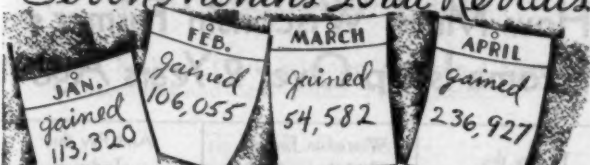 JAN.
gained
113,320
FEB.
gained
106,055
MARCH
gained
54,582
APRIL
gained
236,927